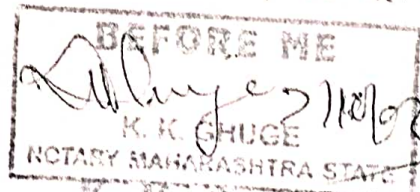 BEFORE ME
K. K. GHUGE
NOTARY MAHARASHTRA STATE